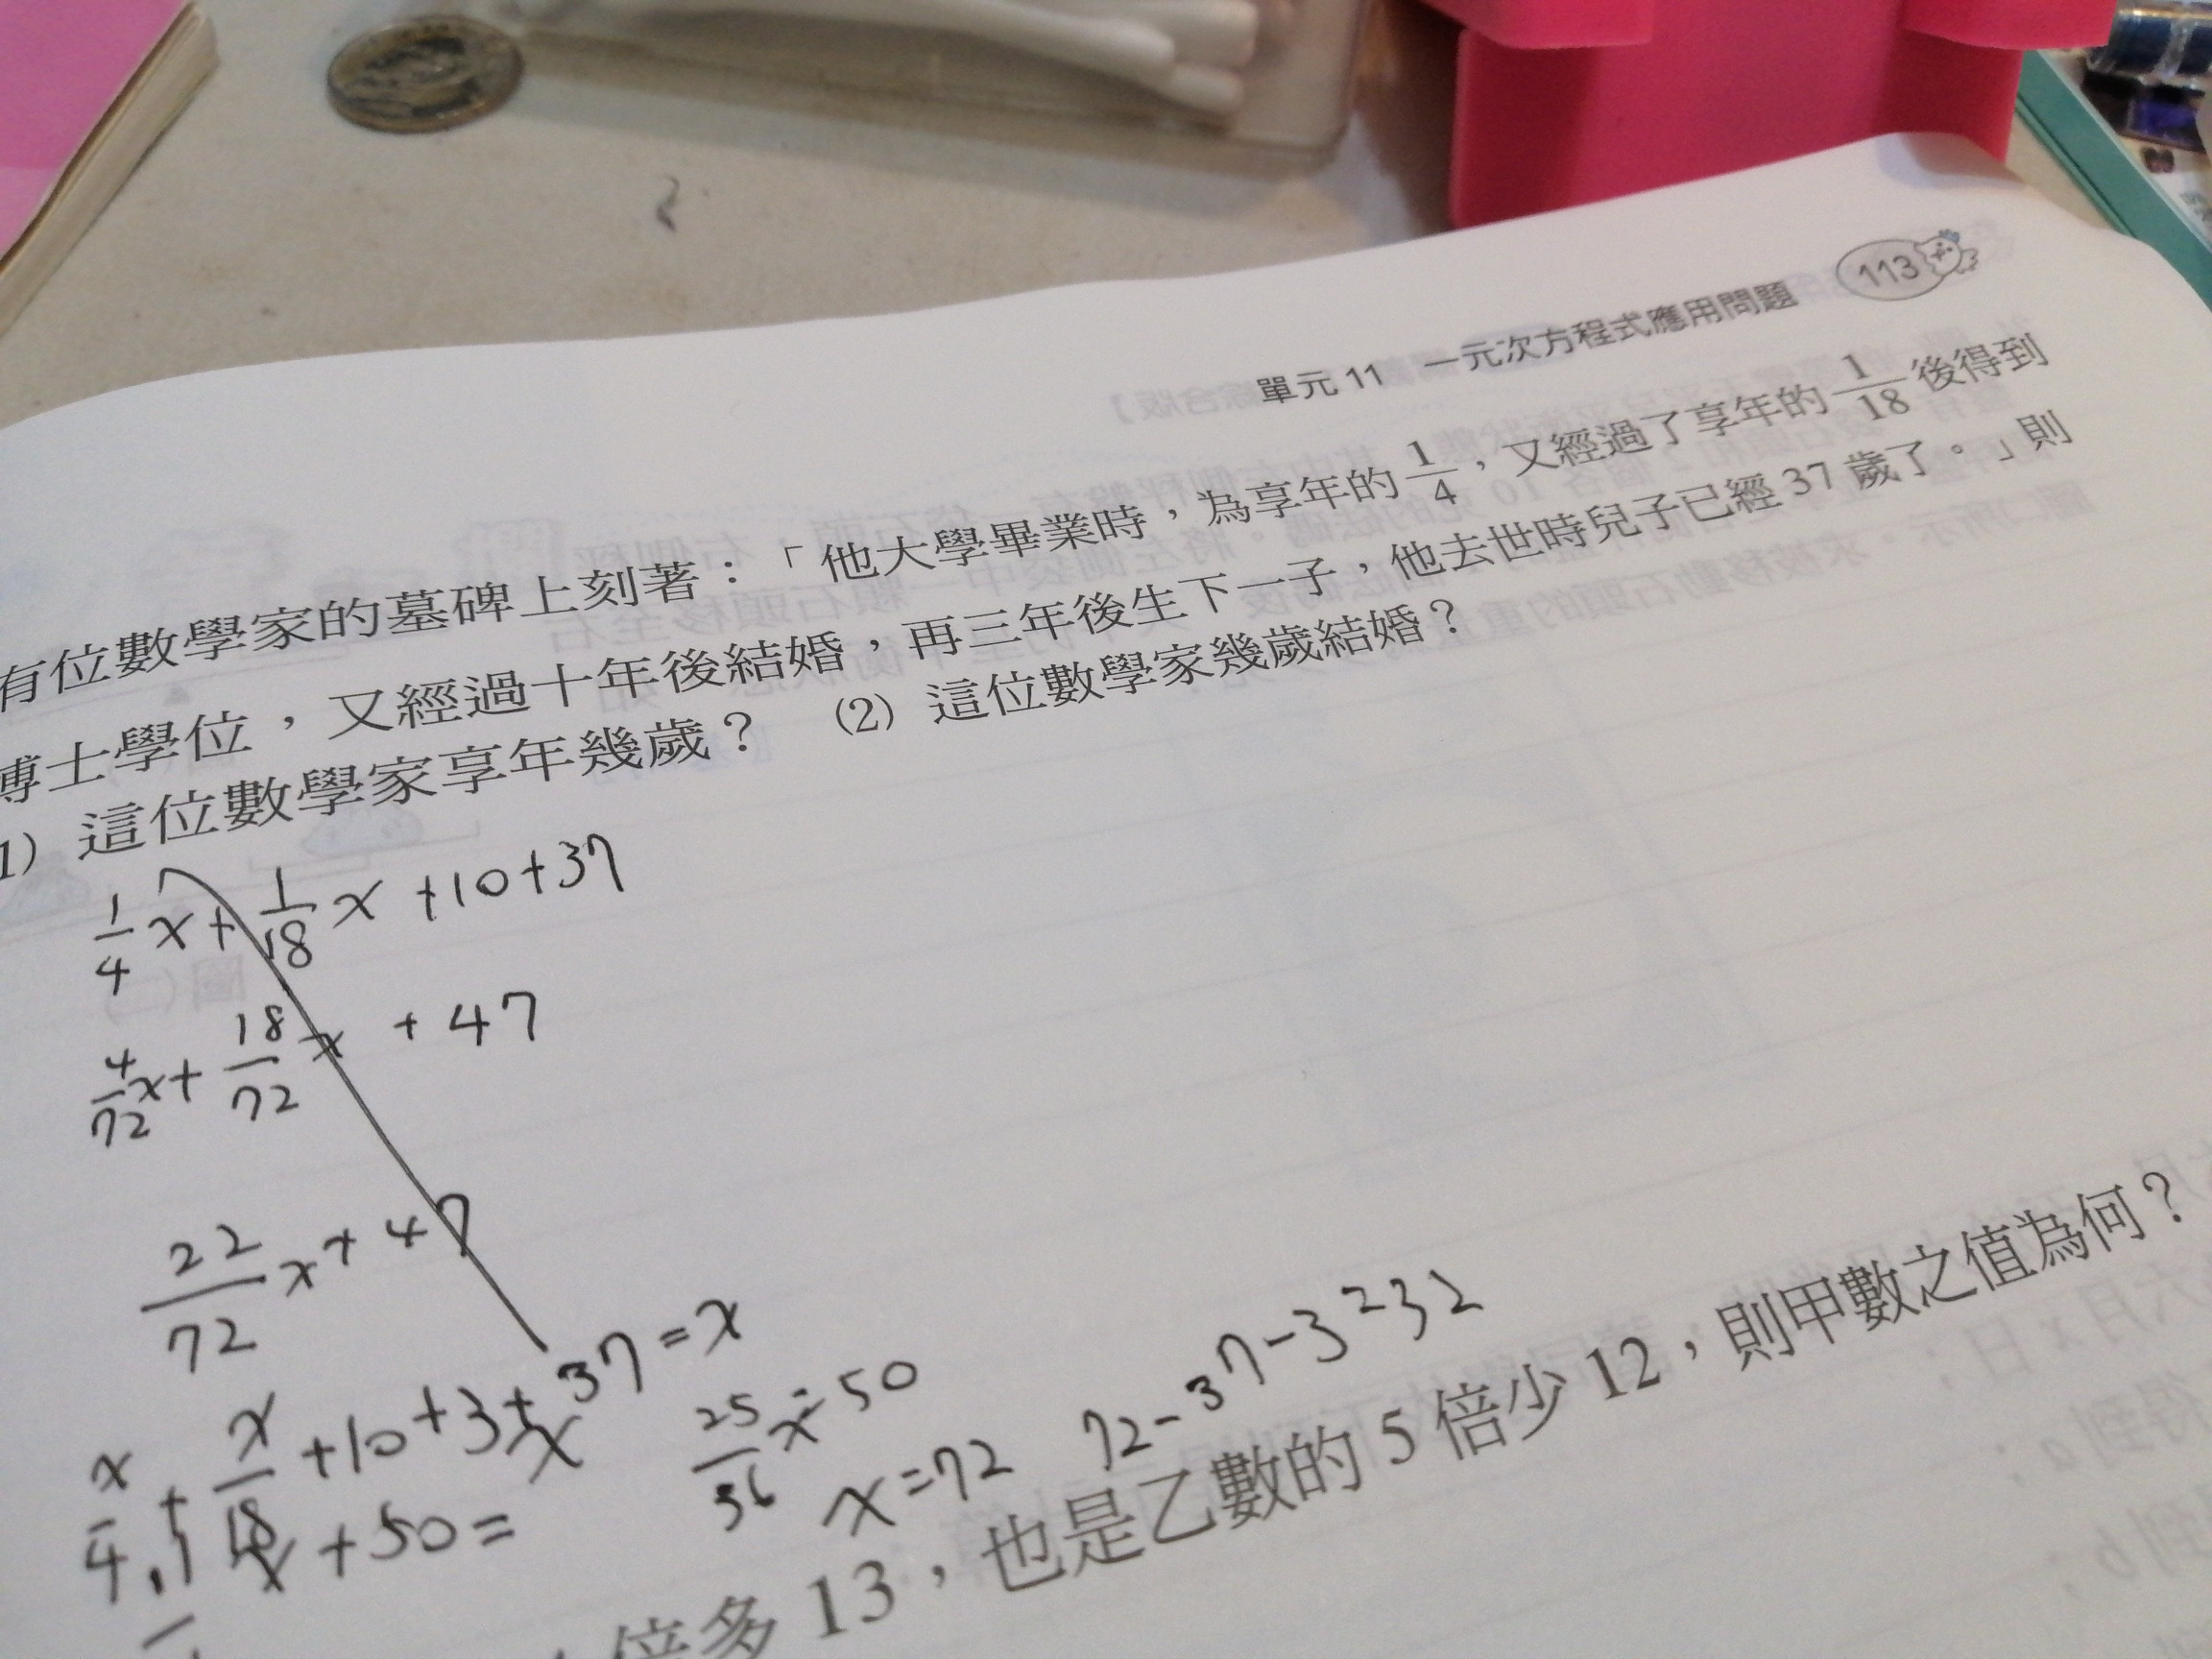 單元 11 一元次方程式應用問題 113
有位數學家的墓碑上刻著：「他大學畢業時，為享年的 1/4，又經過了享年的 1/18 後得到
博士學位，又經過十年後結婚，再三年後生下一子，他去世時兒子已經 37 歲了。」則
(1) 這位數學家享年幾歲？ (2) 這位數學家幾歲結婚？
1/4 x + 1/18 x + 10 + 37
4/72 x + 18/72 x + 47
22/72 x + 47
x/4 + x/18 + 10 + 3 + 37 = x
x + 50 = x
25/36 x = 50
x = 72
72 - 37 - 3 = 32
倍多 13，也是乙數的 5 倍少 12，則甲數之值為何？